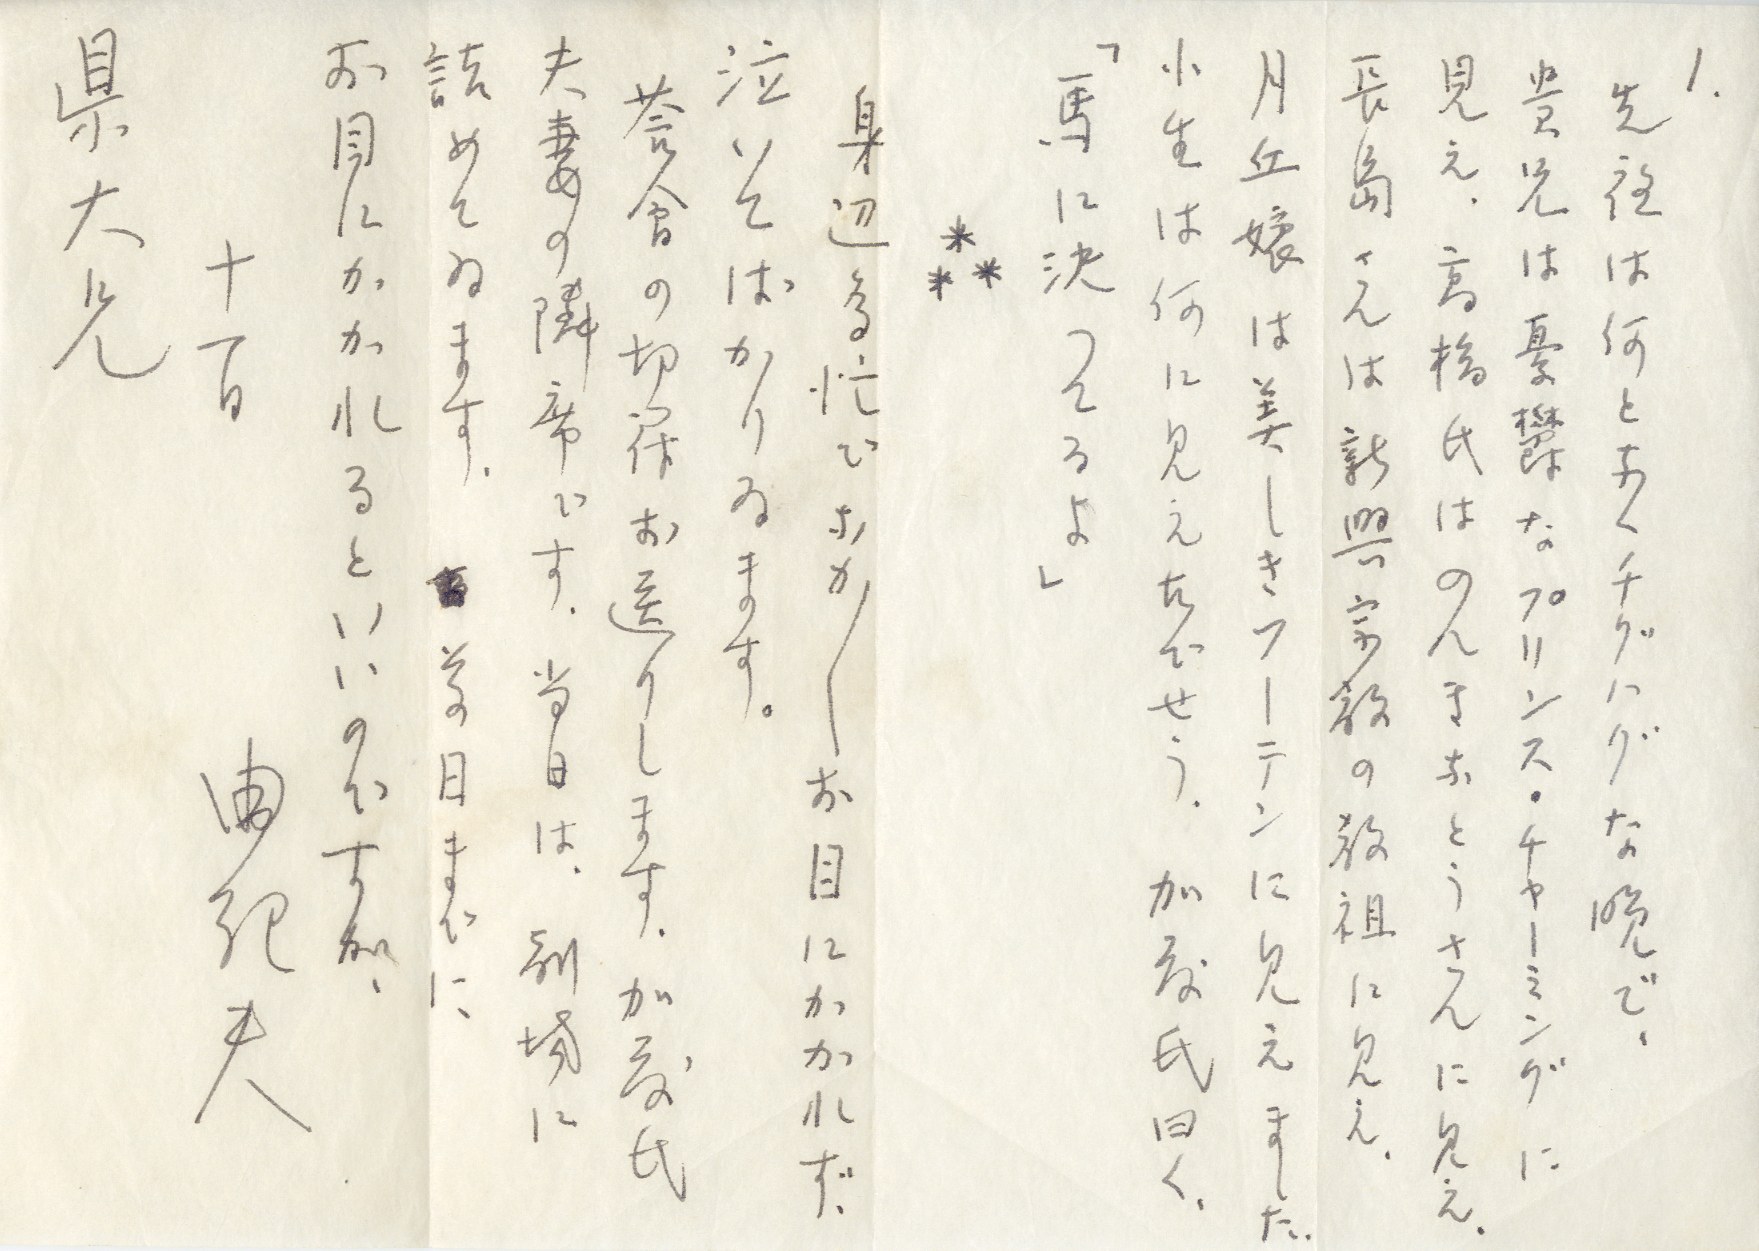 1.
先夜は何となくチグハグな晩で、
貴兄は憂鬱なプリンス・チャーミングに
見え、高橋氏はのんきなとうさんに見え、
長島さんは新興宗教の教祖に見え、
月丘嬢は美しきフーテンに見えました。
小生は何に見えたでせう。加藤氏曰く、
「馬に決つてるよ」
***
身辺多忙でなか〳〵お目にかかれず、
泣いてばかりゐます。
薔会の切符お送りします。加藤氏
夫妻の隣席です。当日は、劇場に
詰めてゐます。 その日までに
お目にかかれるといいのですが、
十一日
由紀夫
県大兄